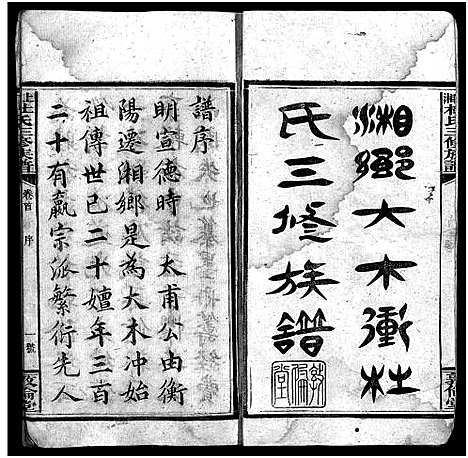 湘鄉大木衝杜
氏三修族譜
譜序
明宣德時　太甫公由衡
陽遷湘鄉是為大木冲始
祖傳世已二十嬗年三百
二十有贏宗派繁衍先人
杜氏三修族譜
卷首
序
一